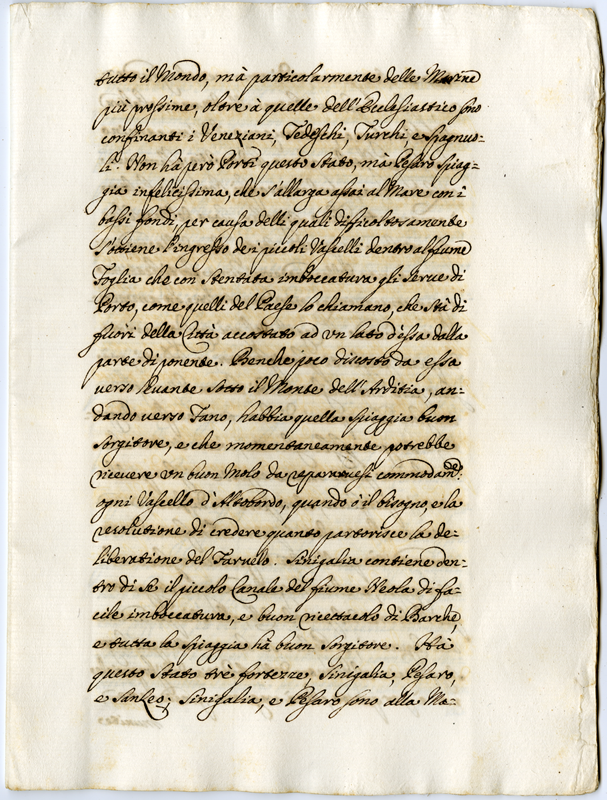 tutto il Mondo, mà particolarmente delle Marine
più prossime, oltre à quelle dell'Ecclesiastico sono
confinanti i Veneziani, Tedeschi, Turchi e Spagnuo-
li. Non hà però Porti questo Stato, mà Pesaro spiag-
gia infelicissima, che s'allarga assai al Mare con i
bassi fondi, per causa delli quali difficoltosamente
s'ottiene l'ingresso dei piccoli Vascelli dentro al fiume
Foglia che con stentata imboccatura gli serve di
Porto, come quelli del Paese lo chiamano, che stà di
fuori della Città accostato ad un lato d'essa dalla
parte di ponente. Benche poco discosto da essa
verso levante sotto il Monte dell'Arditia, an-
dando verso Fano, habbia quella spiaggia buon
sorgitore, e che momentaneamente potrebbe
ricevere un buon Molo da ripararvesi commodamte.
ogni Vascello d'Altobordo, quando v'è il bisogno, e la
resolutione di credere quanto partorisce la de-
liberatione del farvelo. Sinigalia contiene den-
tro di se il piccolo Canale del fiume Neola di fa-
cile imboccatura, e buon ricettacolo di Barche,
e tutta la spiaggia hà buon sorgitore. Hà
questo Stato trè fortezze, Sinigalia, Pesaro,
e San Leo; Sinigalia, e Pesaro sono alla Ma-